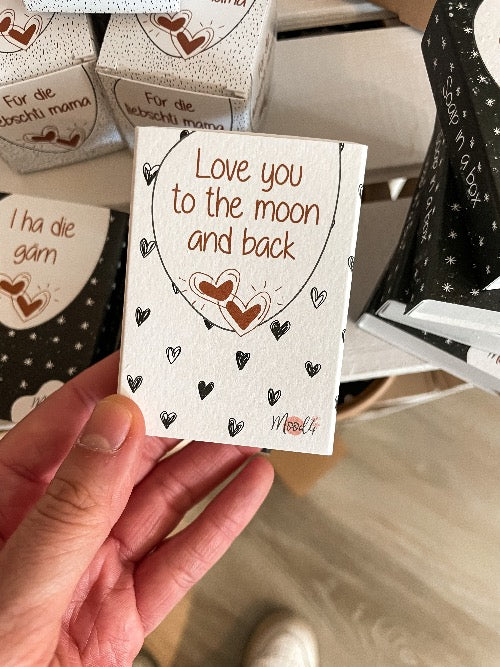 Für die
liebschti mama
Für die
liebschti mama
I ha die
gärn
Love you
to the moon
and back
Mood4
in a box